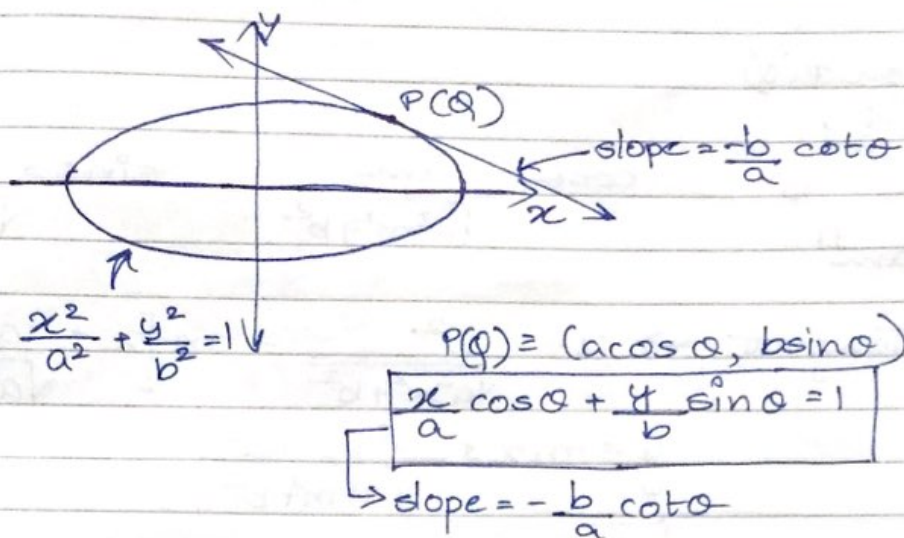 y
P(θ)
slope = -b/a cotθ
x
x²/a² + y²/b² = 1
P(θ) ≡ (acosθ, bsinθ)
x/a cosθ + y/b sinθ = 1
slope = -b/a cotθ